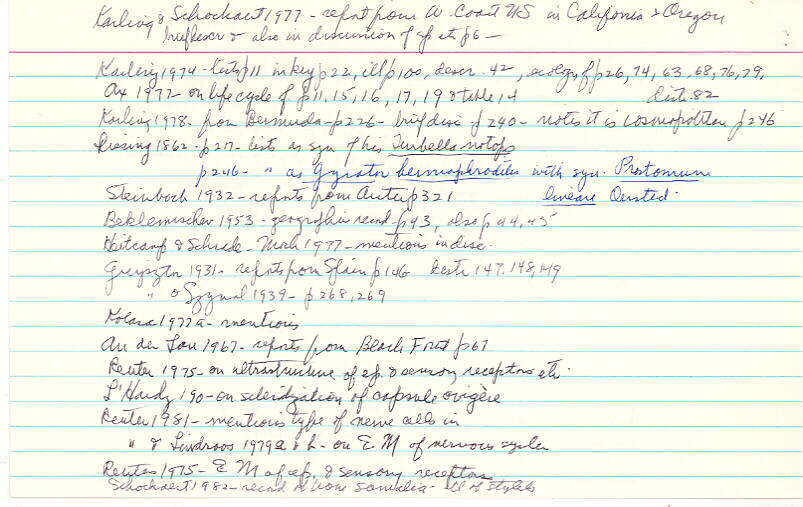 Karling & Schockaert 1977 - report from W. Coast US in California & Oregon
also in discussion of sp et p6 -
Karling 1974 - lists p11 in key p22, ill p100, descr. 42, ecology of p26, 74, 63, 68, 76, 79,
Ax 1977 - on life cycle of p11, 15, 16, 17, 19 & table 14 distr. 82
Karling 1978. from Bermuda - p226 - brief disc. p240 - notes it is cosmopolitan p246
Diesing 1862 - p217 - lists as syn of his Turbella notops
p246 - " as Gyrator hermaphroditus with syn. Prostomum
Steinbock 1932 - reports from p321 lineare Oersted.
Beklemischev 1953 - geographic record - p43, also p44, 45
Heitcamp & Schrade - Moch 1977 - mentions in disc.
Gieysztor 1931 - reports from Spain p146 147, 148, 149
" & Szynal 1939 - p268, 269
Kolasa 1977a - mentions
An der Lan 1967 - reports from Black Forest p67
Reuter 1975 - on ultrastructure of ep. & sensory receptors etc.
L'Hardy 190 - on scleridization of capsule ovigère
Reuter 1981 - mentions type of nerve cells in
" & Lindroos 1979a & b - on E M of nervous system
Reuter 1975 - E M of ep. & sensory receptors
Schockaert 1982 - record from Somalia - ill of stylets